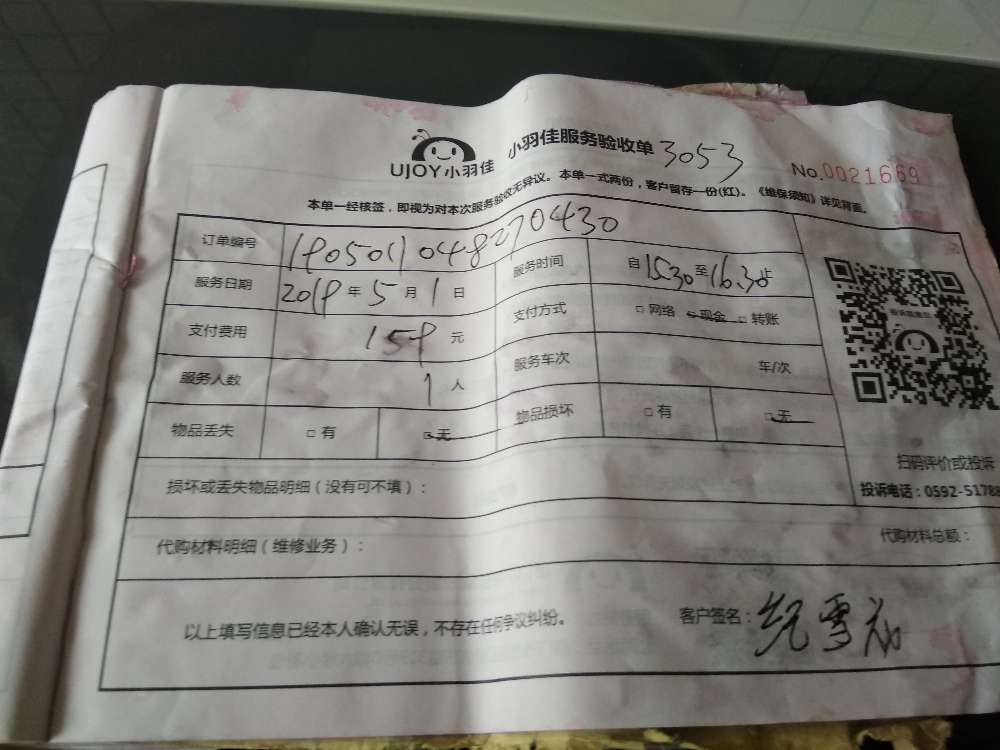 UJOY小羽佳 小羽佳服务验收单 3053 No.0021669
本单一经核签，即视为对本次服务验收无异议。本单一式两份，客户留存一份(红)。《维保须知》详见背面。
订单编号 1905011048270430
服务日期 2019年5月1日 服务时间 自15.30至16.30止
支付费用 159元 支付方式 □网络 □现金 □转账
服务人数 1人 服务车次 车/次
物品丢失 □有 □无 物品损坏 □有 □无
扫码评价或投诉
损坏或丢失物品明细（没有可不填）：
投诉电话：0592-51788
代购材料明细（维修业务）： 代购材料总额：
以上填写信息已经本人确认无误，不存在任何争议纠纷。 客户签名：纪雪